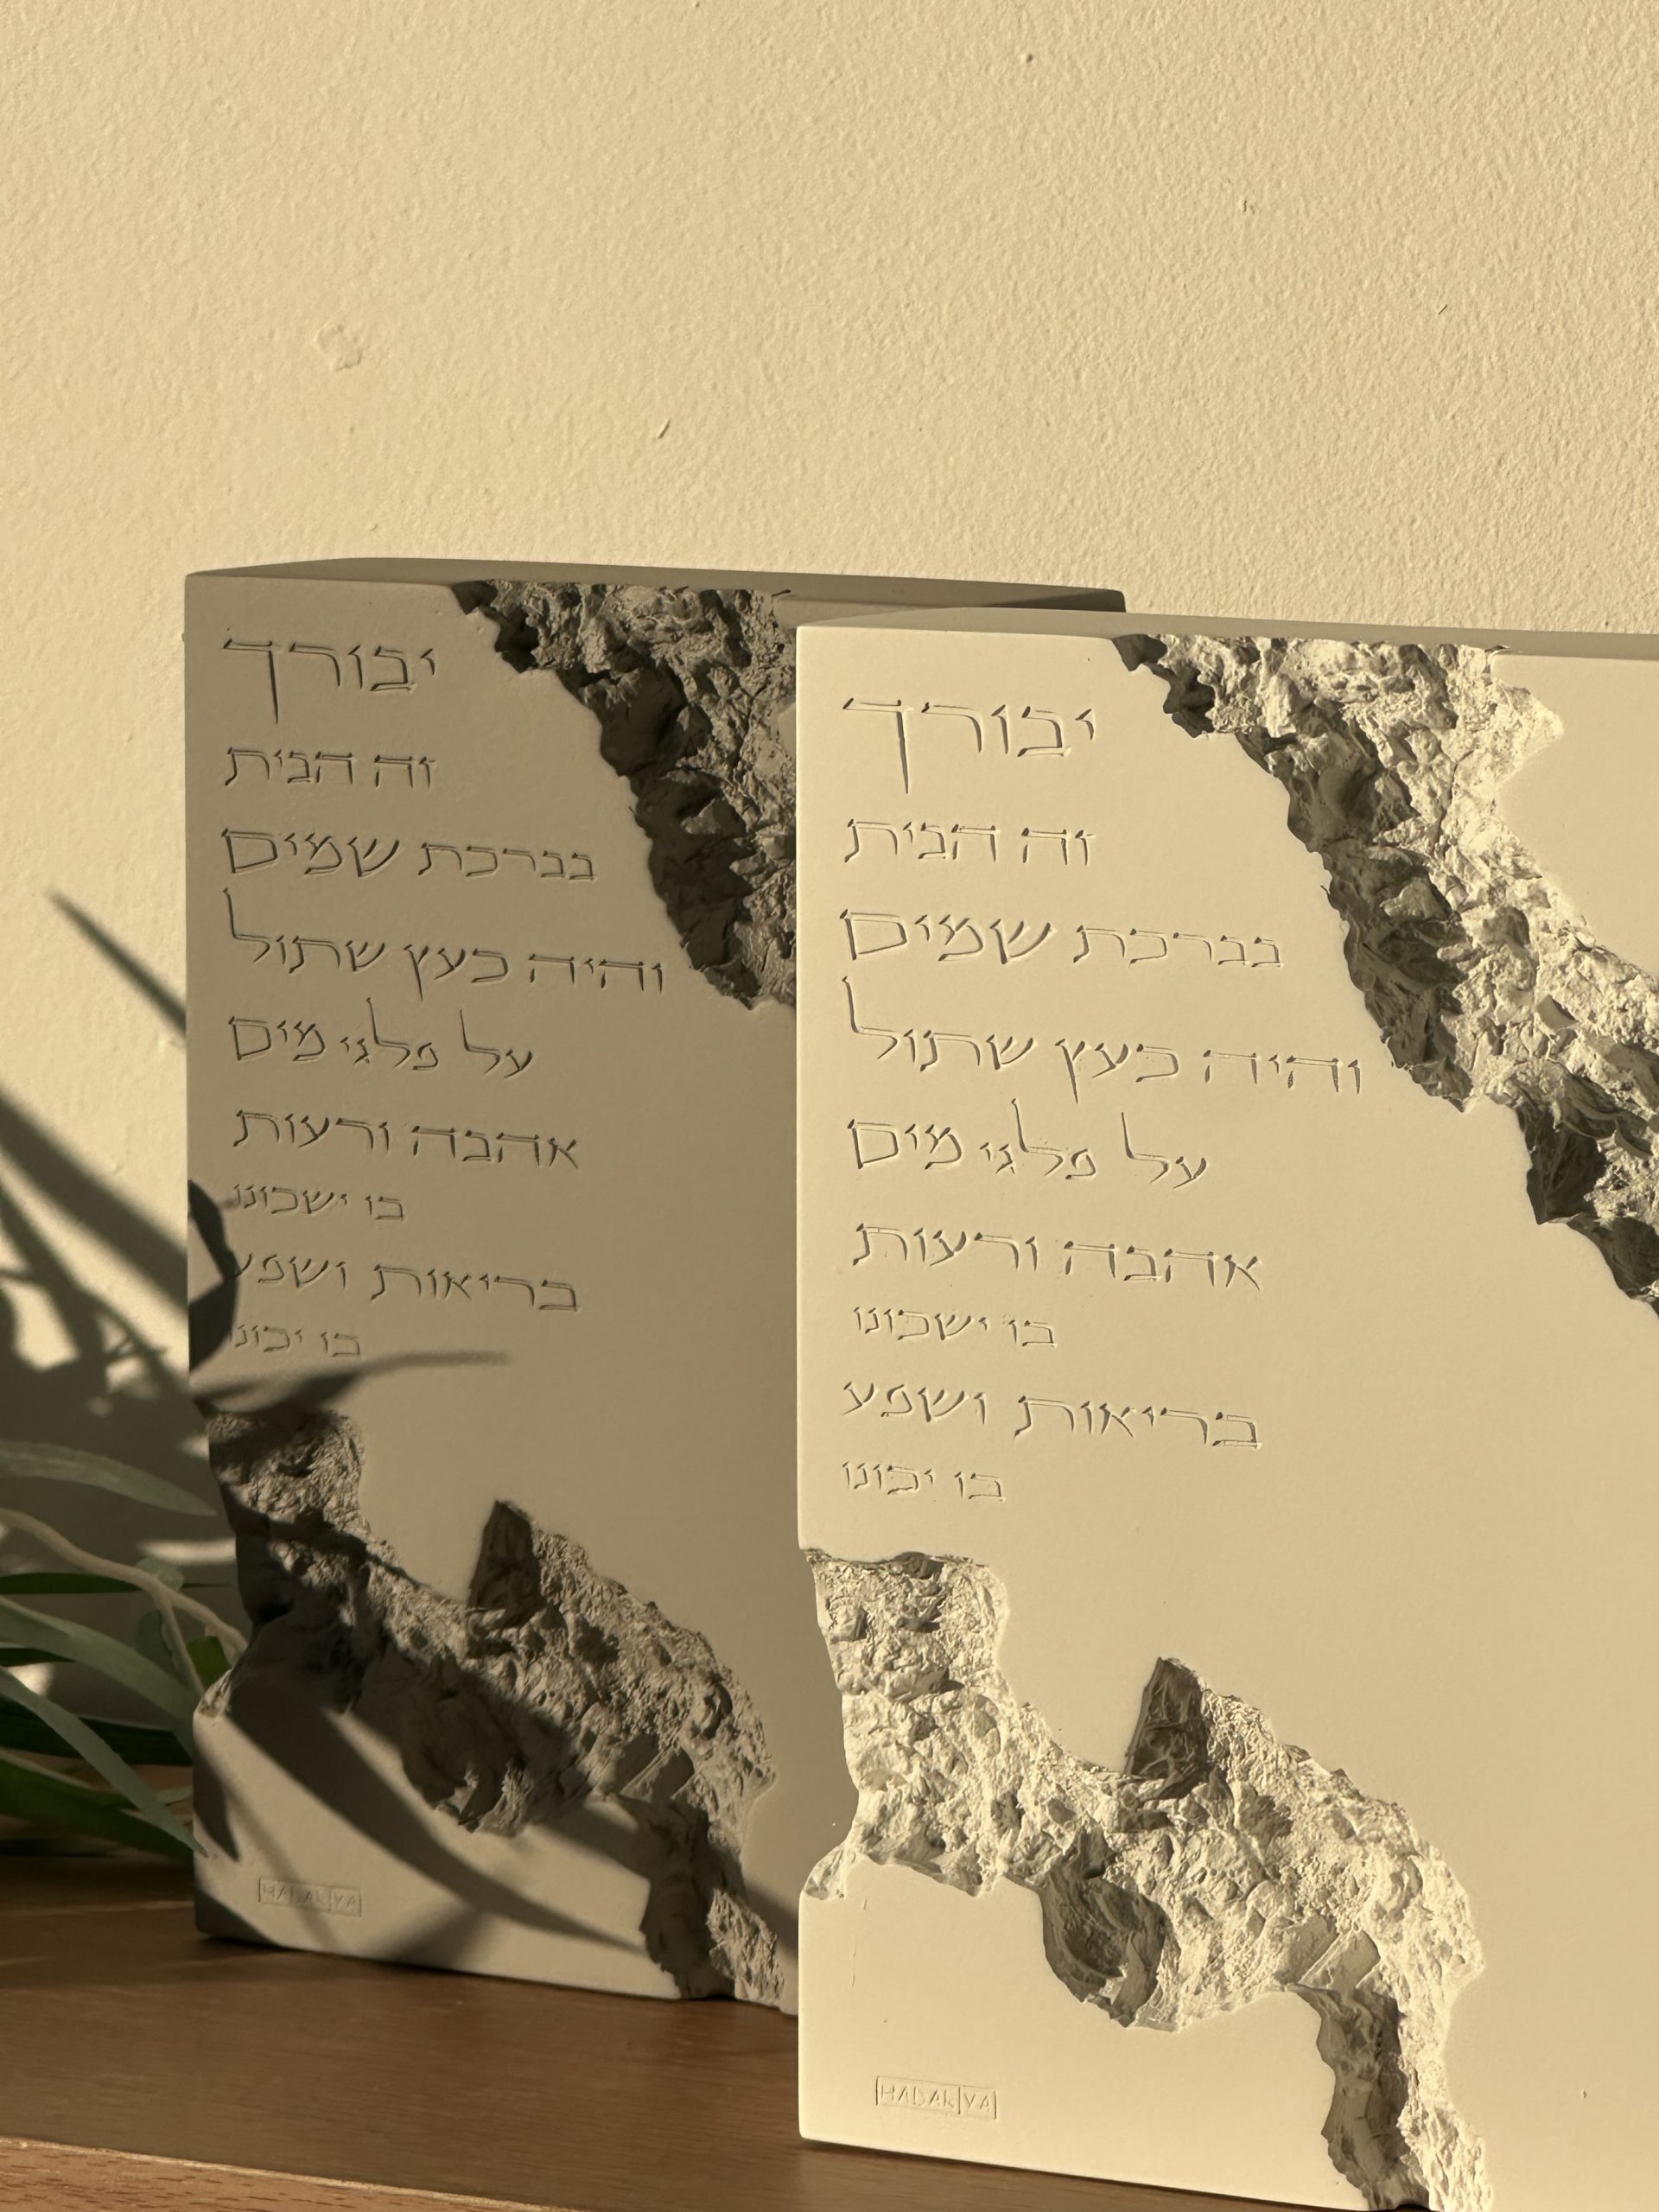 יבורך
זה הבית
בברכת שמים
והיה כעץ שתול
על פלגי מים
אהבה ורעות
בו ישכונו
בריאות ושפע
בו יכונו
HADAR YA
יבורך
זה הבית
בברכת שמים
והיה כעץ שתול
על פלגי מים
אהבה ורעות
בו ישכונו
בריאות ושפע
בו יכונו
HADAR YA